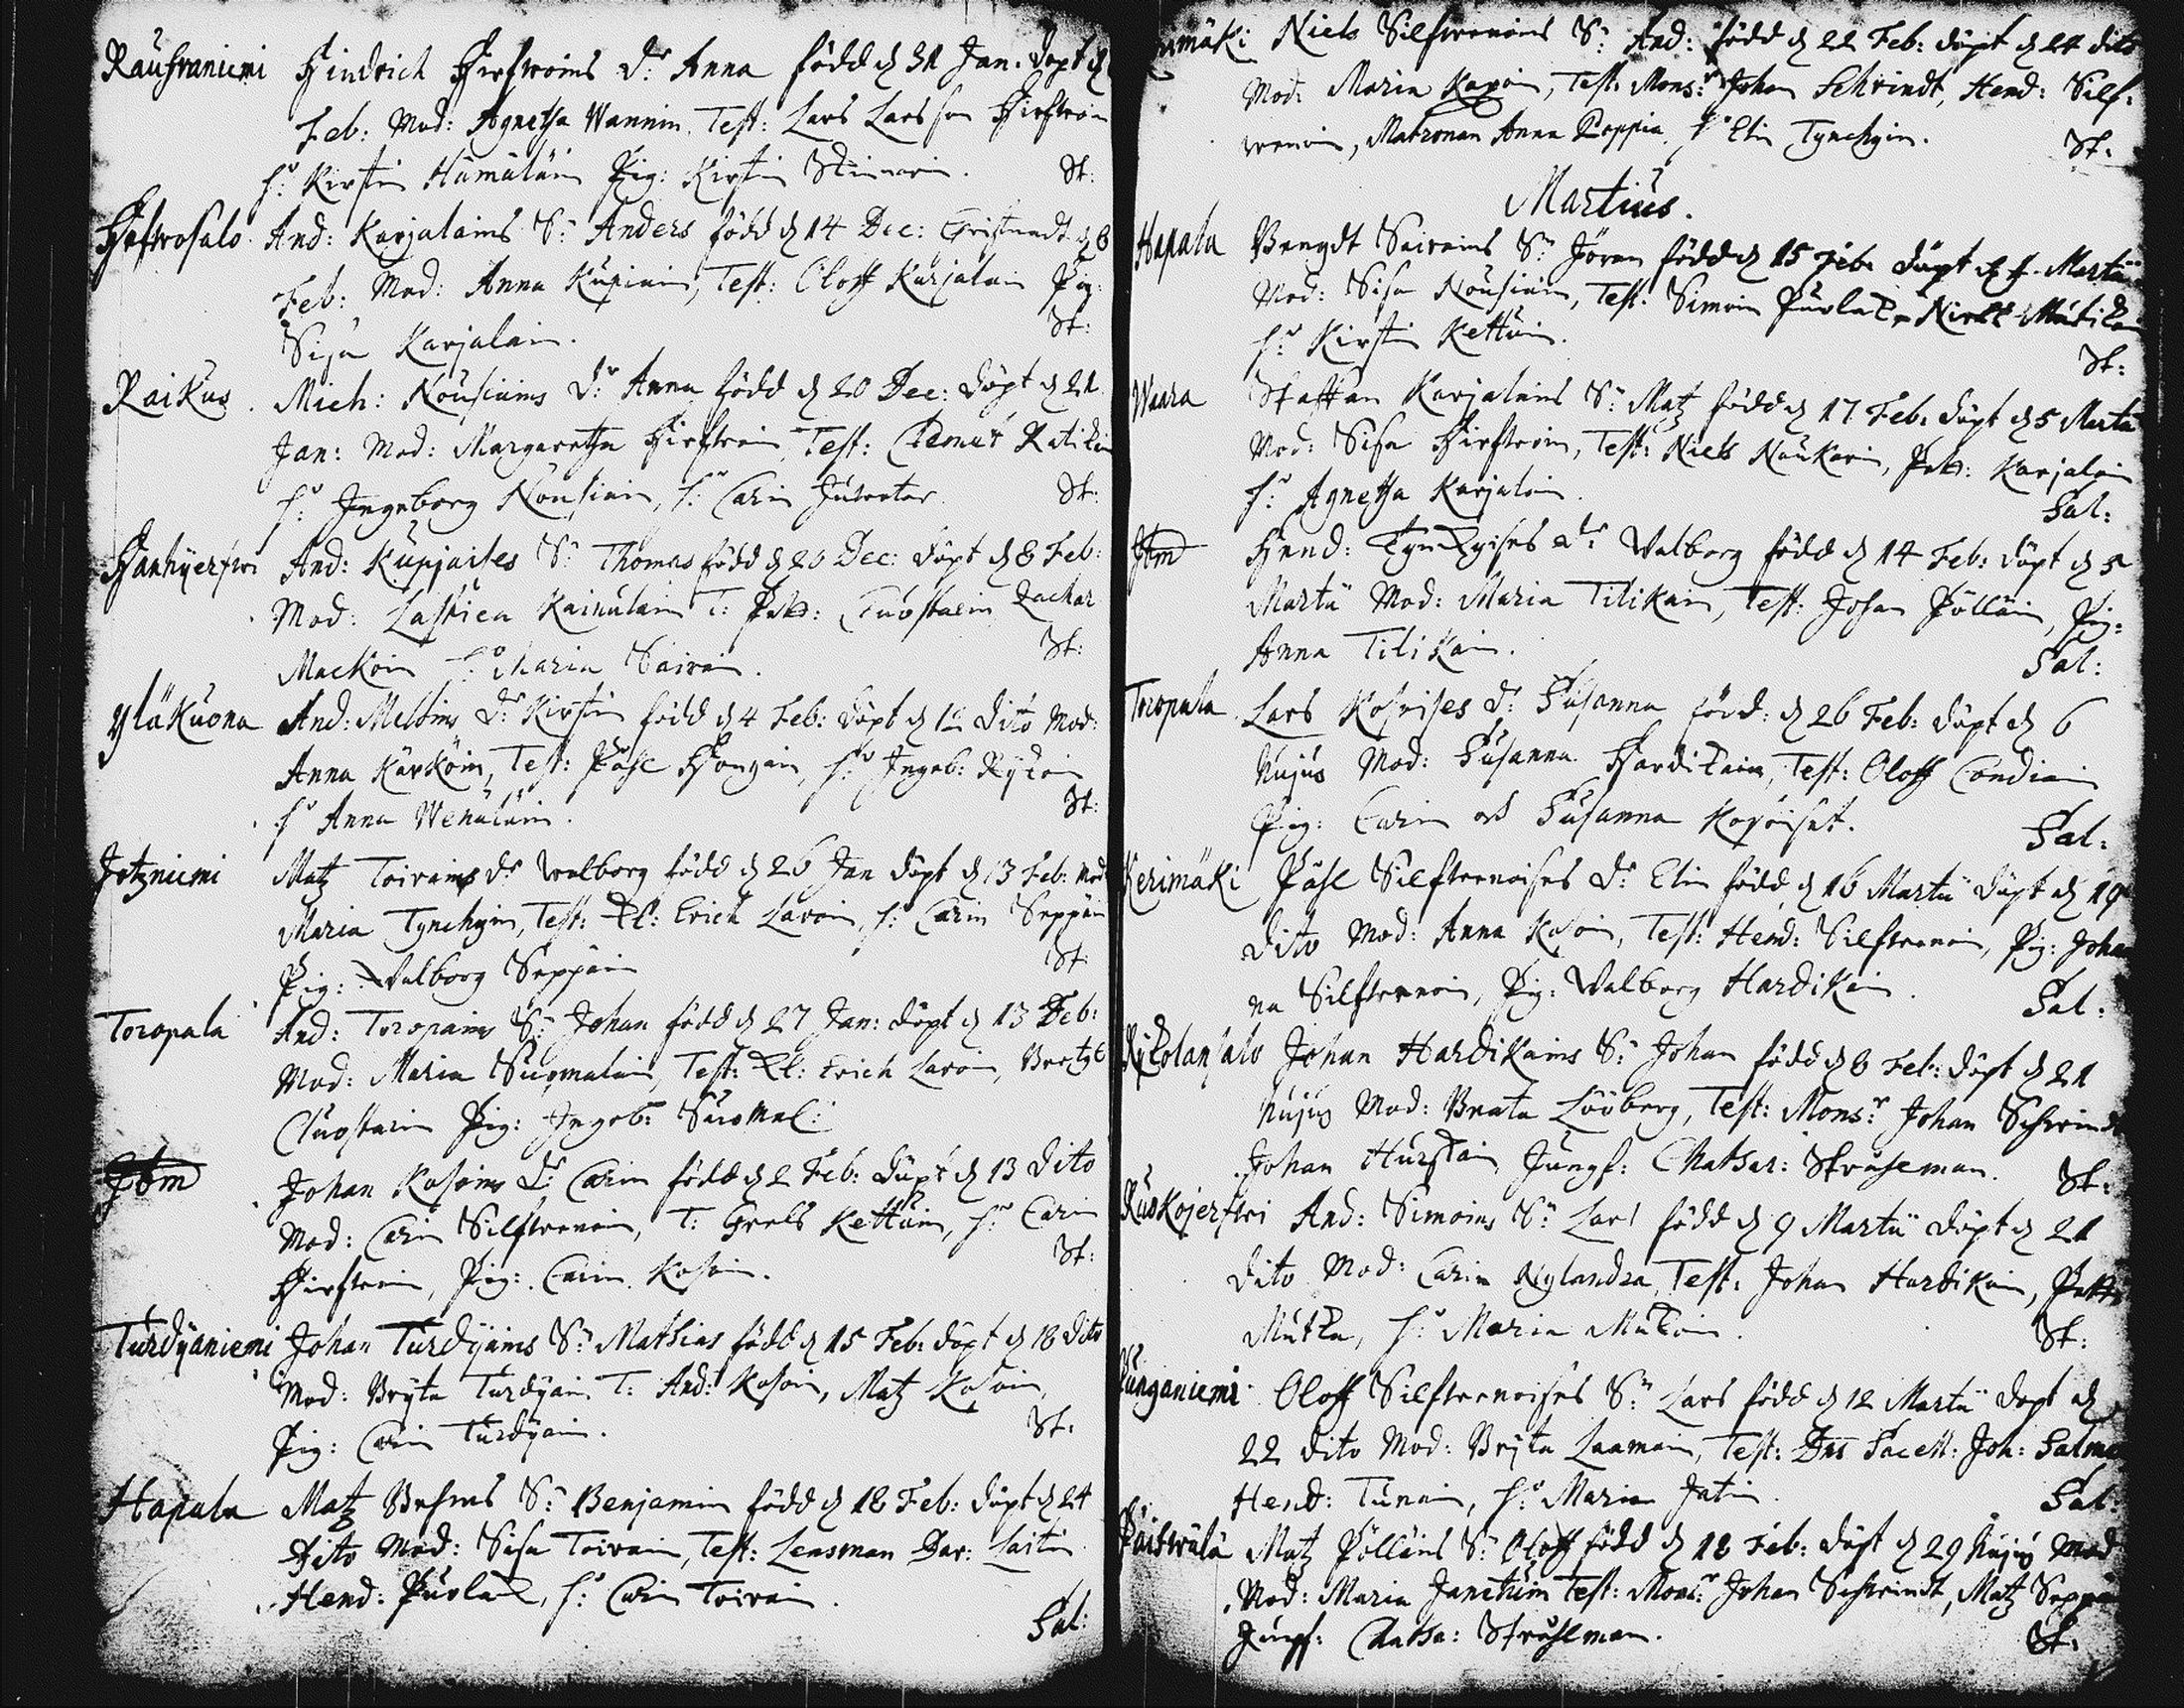 Raufraniemi Hindrich Hirfwoins Dr Anna född d 31 Jan. döpt d
Feb: Mod: Agnetha Wannin. Test: Lars Larsson Hirfwoin
h: Kirstin Hämäläin Pig: Kirstin St:
And: Karjalains Sn: Anders född d 14 Dec: Christnadt d 8
Feb: Mod: Anna Kupiain, Test: Oloff Karjalain Pig:
Sisa Karjalain. St:
Raikus. Mich: Nousiains Dr: Anna född d 20 Dec: döpt d 21
Jan: Mod: Margaretha Hirfwoin, Test: Clemet Ratikain
h: Ingeborg Nousiain, h: Carin St:
And: Kupiaises Sn: Thomas född d 20 Dec: döpt d 8 Feb:
Mod: Kainulain T: Pett: Zachar
Mackoin h: Maria Sairain. St:
Yläkuona And: Meloins Dr: Kirstin född d 4 Feb: döpt d 12 dito Mod:
Anna Kärköin, Test: Påhl Hongain, h: Ingeb: Rytkoin
h: Anna Wenäläin. St:
Jotzniemi Matz Toivains Dr Walborg född d 26 Jan döpt d 13 Feb: Mod
Maria Tynchyin, Test: Erich Lavoin, h: Carin Seppäin
Pig: Walborg Seppäin St:
Toropala And: Toropains Sn: Johan född d 27 Jan: döpt d 13 Feb:
Mod: Maria Suomalain, Test: Erich Lavoin,
Pig: Ingeb: Suomal:
Ibm Johan Kosoins Dr: Carin född d 2 Feb: döpt d 13 dito
Mod: Carin Silfwenoin, T: Grels Kettuin, h: Carin
Hirfwoin, Pig: Carin Kosoin. St:
Turdÿaniemi Johan Turdÿains Sn: Mathias född d 15 Feb: döpt d 18 dito
Mod: Brÿta Turdÿain T: And: Kosoin, Matz Kosoin,
Pig: Carin Turdÿain. St:
Hapala Matz Sn: Benjamin född d 18 Feb: döpt d 24
dito Mod: Sisa Toivain, Test: Lensman Laitin
Hend: h: Carin Toivain. Sal:
Niels Silfwenoins Sn: And: född d 22 Feb: döpt d 24 dito
Mod: Maria Test: Monsr: Johan Schrindt, Hend: Silf:
wenoin, Matronan Anna Poppia, h: Elin Tynchyin. St:
Martius.
Hapala Bengdt Sairains Sn Jöran född d 15 Feb: döpt d Martii
Mod: Sisa Nousiain, Test: Simoin
h: Kirstin Kettuin. St:
Waara Staffan Karjalains Sn: Matz född d 17 Feb: döpt d 5 Martii
Mod: Sisa Hirfwoin, Test: Niels Naukarin, Pett: Karjalain
h: Agnetha Karjalain. Sal:
Ibm Hend: Tynchyises Dr: Walborg född d 14 Feb: döpt d 5
Martii Mod: Maria Tilikain, Test: Johan Pölläin, Pig:
Anna Tilikain. Sal:
Toropala Lars Kosoises Dr: Susanna född: d 26 Feb: döpt d 6
hujus Mod: Susanna Hardikain, Test: Oloff Condiain
Pig: Carin och Susanna Sal:
Kerimäki Påhl Silfwenoises Dr: Elin född d 16 Martii döpt d 19
dito Mod: Anna Kosoin, Test: Hend: Silfwenoin, Pig: Johan
na Silfwenoin, Pig: Walborg Hardikain. Sal:
Johan Hardikains Sn: Johan född d 8 Feb: döpt d 21
hujus Mod: Beata Lööberg, Test: Monsr: Johan Schrindt
Johan Hurskain, Jungf: Cathar: Stråhlman. St:
Ruokojerfwi And: Simoins Sn: Lars född d 9 Martii döpt d 21
dito Mod: Carin Nylandra, Test: Johan Hardikain, Pett
Mutka, h: Maria Mutkoin. St:
Punganiemi Oloff Silfwenoises Sn: Lars född d 12 Martii döpt d
22 dito Mod: Brÿta Laamain, Test: Dns Sacell: Joh: Salme
Hend: Tunnin, h: Maria Jatin. Sal:
Matz Pölläins Sn: Oloff född d 18 Feb: döpt d 29 hujus Mod
Mod: Maria Janchuin Test: Monsr: Johan Schrindt, Matz Seppäin
Jungf: Catha: Stråhlman. St: